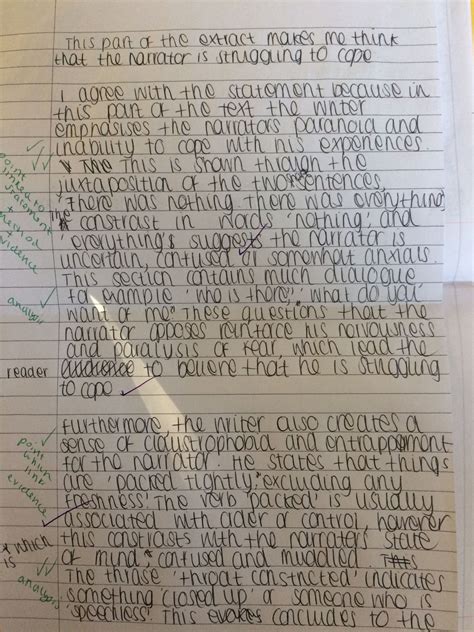 This part of the extract makes me think
that the narrator is struggling to cope
I agree with the statement because in
this part of the text the writer
emphasises the narrators paranoia and
inability to cope with his experiences.
This is shown through the
juxtaposition of the two sentences,
'There was nothing. There was everything'
The constrast in words 'nothing', and
'everything's suggests the narrator is
uncertain, confused or somewhat anxiaus.
This section contains much dialogue
for example 'who is there', 'what do you
want of me' These questions that the
narrator opposes reinforce his nervousness
and paralysis of fear, which lead the
reader
audience to believe that he is struggling
to cope
Furthermore, the writer also creates a
sense of claustrophobia and entrappment
for the narrator. He states that things
are 'packed tightly, excluding any
freshness'. The verb 'packed' is usually
associated with order or control, however
this constrasts with the narrators state
of mind,* confused and muddled.
* which
is
The phrase 'throat constricted' indicates
something 'closed up' or someone who is
'speechless'. This evokes concludes to the
point
linked to
statement
+
method
evidence
analysis
point
which
link
evidence
analysis